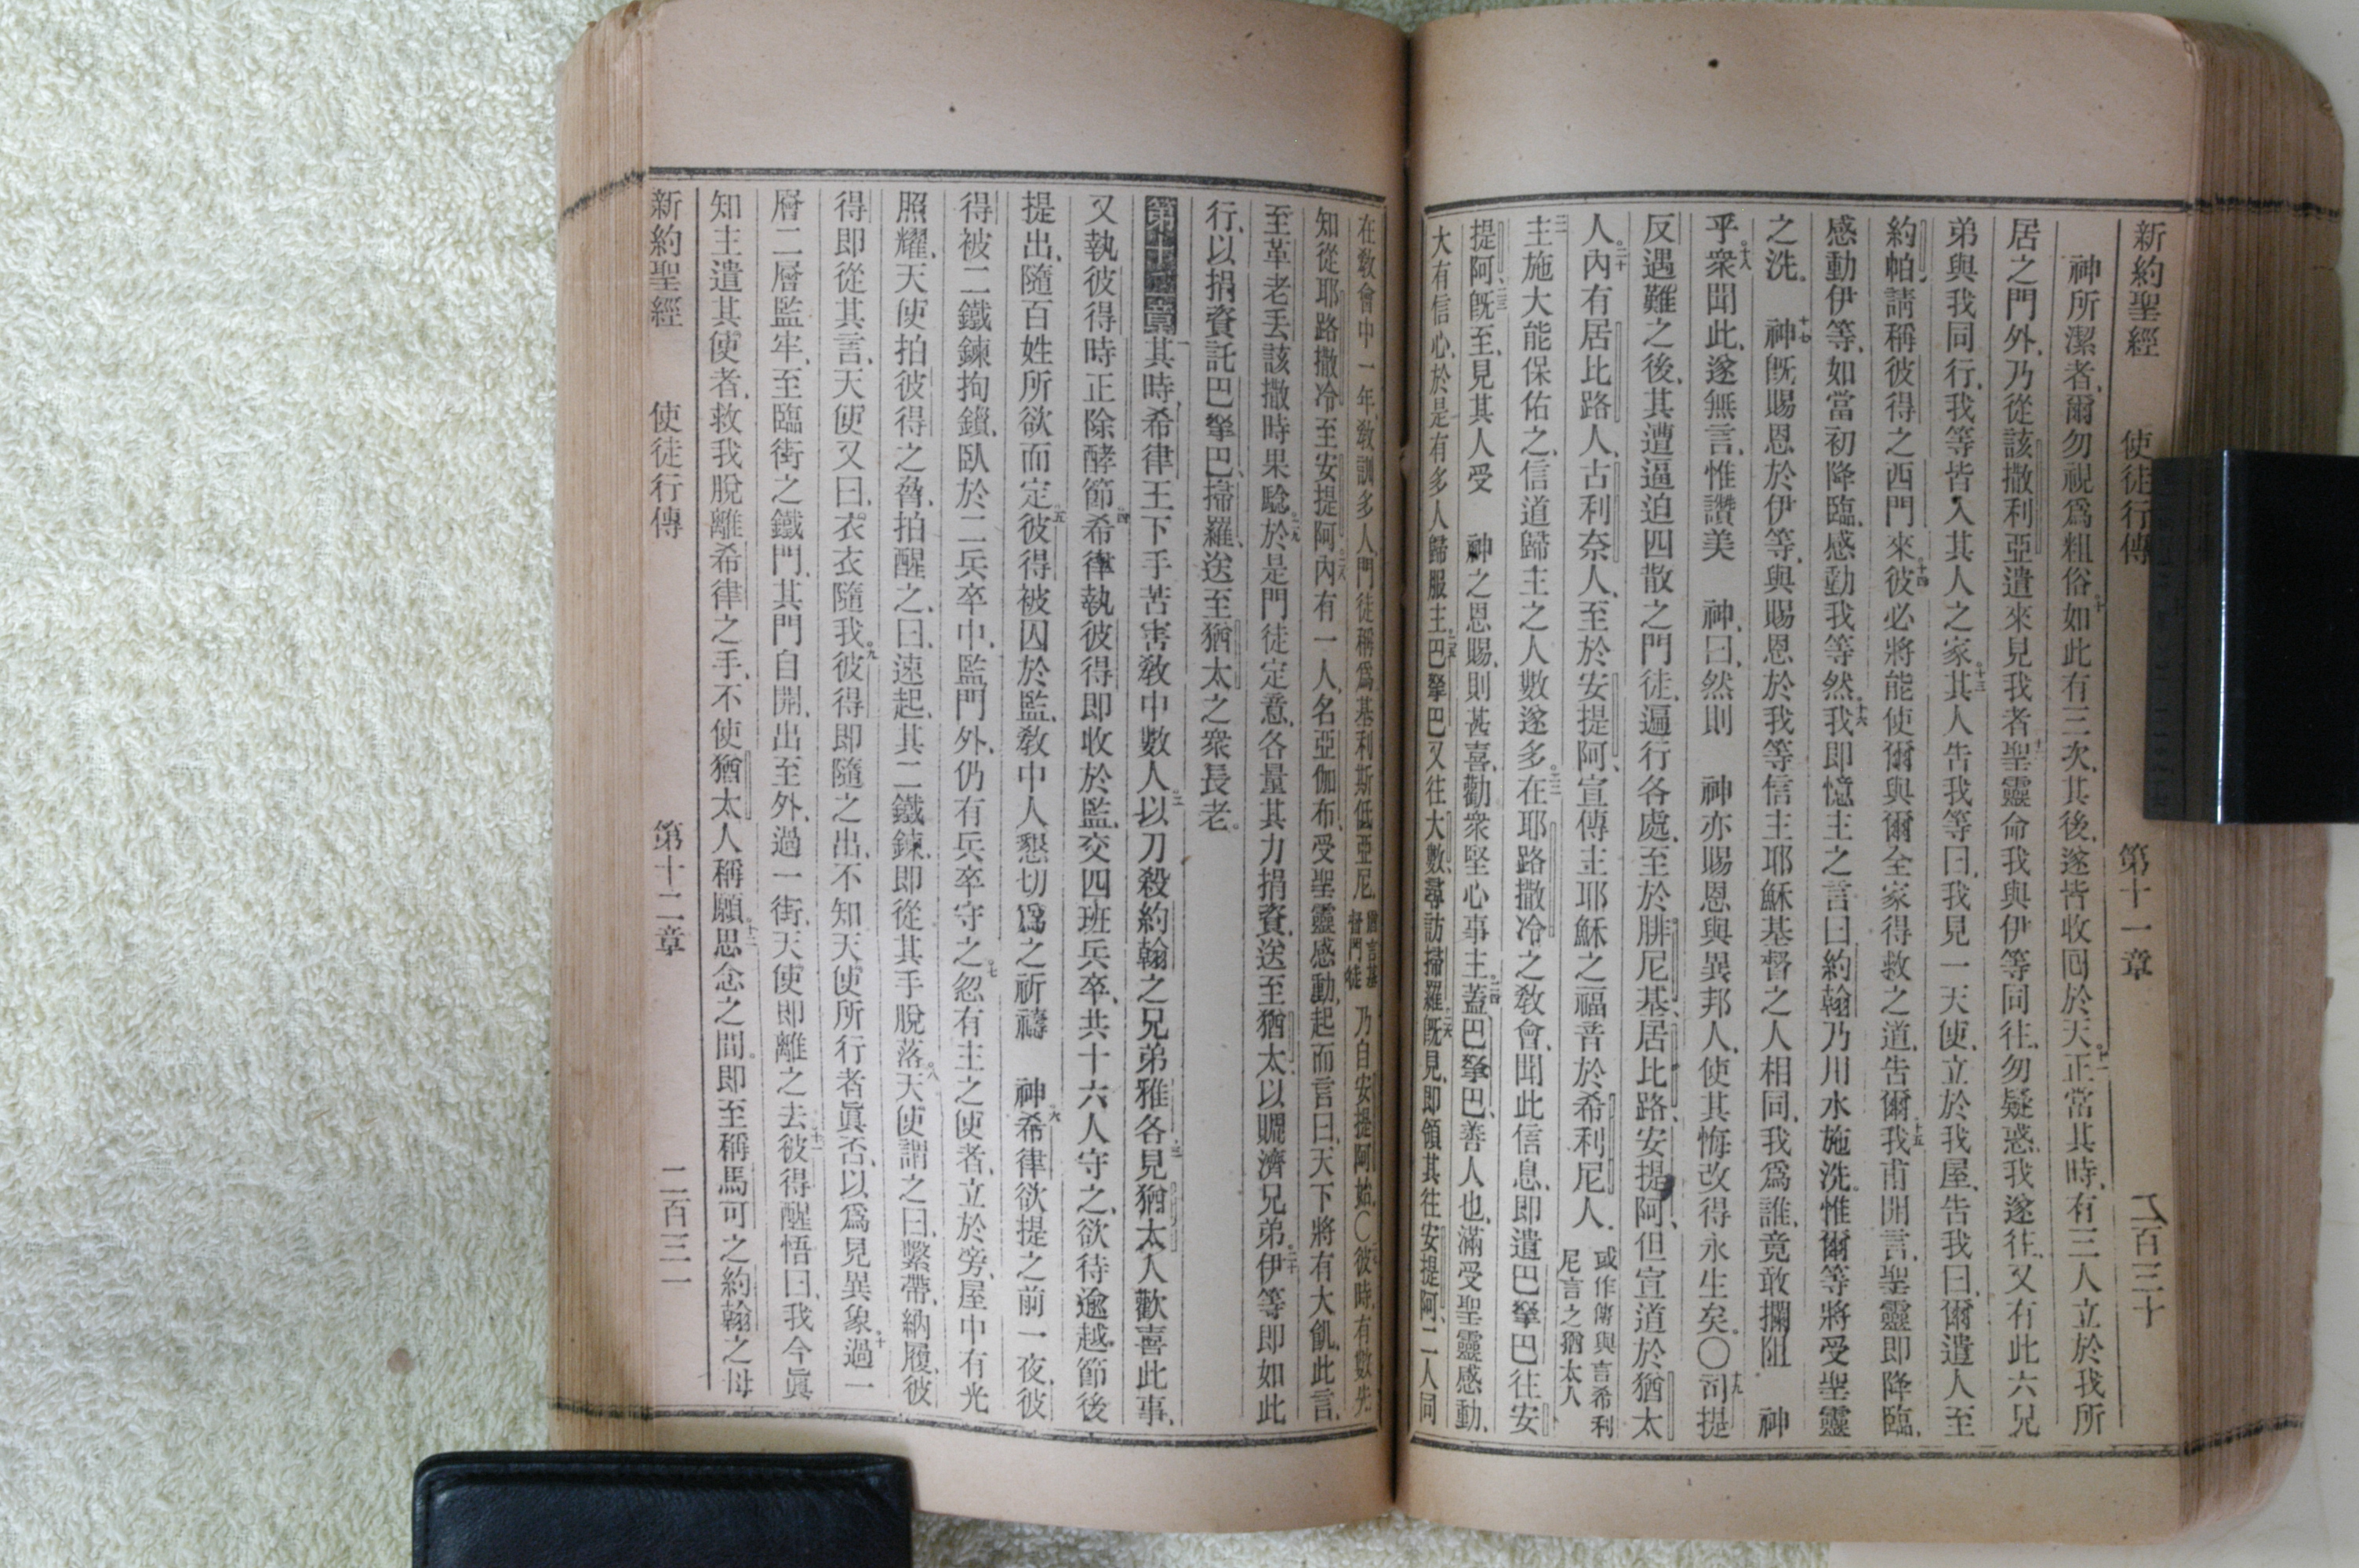 新約聖經 使徒行傳 第十一章 二百三十
神所潔者、爾勿視爲粗俗、十如此有三次、其後、遂皆收囘於天。十一正當其時、有三人立於我所
居之門外、乃從該撒利亞遣來見我者、十二聖靈命我與伊等同往、勿疑惑、我遂往、又有此六兄
弟與我同行、我等皆入其人之家。十三其人告我等曰、我見一天使、立於我屋、告我曰、爾遣人至
約帕、請稱彼得之西門來、十四彼必將能使爾與爾全家得救之道、告爾、十五我甫開言、聖靈即降臨、
感動伊等、如當初降臨、感動我等然。十六我即憶主之言曰、約翰乃用水施洗、惟爾等將受聖靈
之洗。十七神旣賜恩於伊等、與賜恩於我等信主耶穌基督之人相同、我爲誰、竟敢攔阻 神
乎。十八衆聞此、遂無言、惟讚美 神、曰、然則 神亦賜恩與異邦人、使其悔改得永生矣。〇十九司提
反遇難之後、其遭逼迫四散之門徒、遍行各處、至於腓尼基、居比路、安提阿、但宣道於猶太
人。二十內有居比路人、古利奈人、至於安提阿、宣傳主耶穌之福音於希利尼人。或作傳與言希利尼言之猶太人
二一主施大能保佑之、信道歸主之人數遂多。二二在耶路撒冷之敎會、聞此信息、即遣巴拏巴往安
提阿、二三旣至、見其人受 神之恩賜、則甚喜、勸衆堅心事主。二四蓋巴拏巴、善人也、滿受聖靈感動、
大有信心、於是有多人歸服主。二五巴拏巴又往大數、尋訪掃羅、二六旣見、即領其往安提阿、二人同
在敎會中一年、敎訓多人、門徒稱爲基利斯低亞尼、猶言基督門徒 乃自安提阿始。〇二七彼時、有數先
知從耶路撒冷至安提阿。二八內有一人、名亞伽布、受聖靈感動、起而言曰、天下將有大飢、此言、
至革老丟該撒時果騐。二九於是門徒定意、各量其力捐資、送至猶太、以賙濟兄弟。三十伊等即如此
行、以捐資託巴拏巴、掃羅、送至猶太之衆長老。
第十二章 一其時、希律王下手苦害敎中數人。二以刀殺約翰之兄弟雅各、三見猶太人歡喜此事、
又執彼得、時正除酵節。四希律執彼得、即收於監、交四班兵卒、共十六人守之、欲待逾越節後
提出、隨百姓所欲而定。五彼得被囚於監、敎中人懇切爲之祈禱 神。六希律欲提之前一夜、彼
得被二鐵鍊拘鎖、臥於二兵卒中、監門外、仍有兵卒守之。七忽有主之使者、立於旁、屋中有光
照耀、天使拍彼得之脅、拍醒之、曰、速起、其二鐵鍊、即從其手脫落。八天使謂之曰、繫帶、納履、彼
得即從其言、天使又曰、衣衣隨我。九彼得即隨之出、不知天使所行者眞否、以爲見異象。十過一
層二層監牢、至臨街之鐵門、其門自開、出至外、過一街、天使即離之去。十一彼得醒悟曰、我今眞
知主遣其使者、救我脫離希律之手、不使猶太人稱願。十二思念之間、即至稱馬可之約翰之母
新約聖經 使徒行傳 第十二章 二百三一